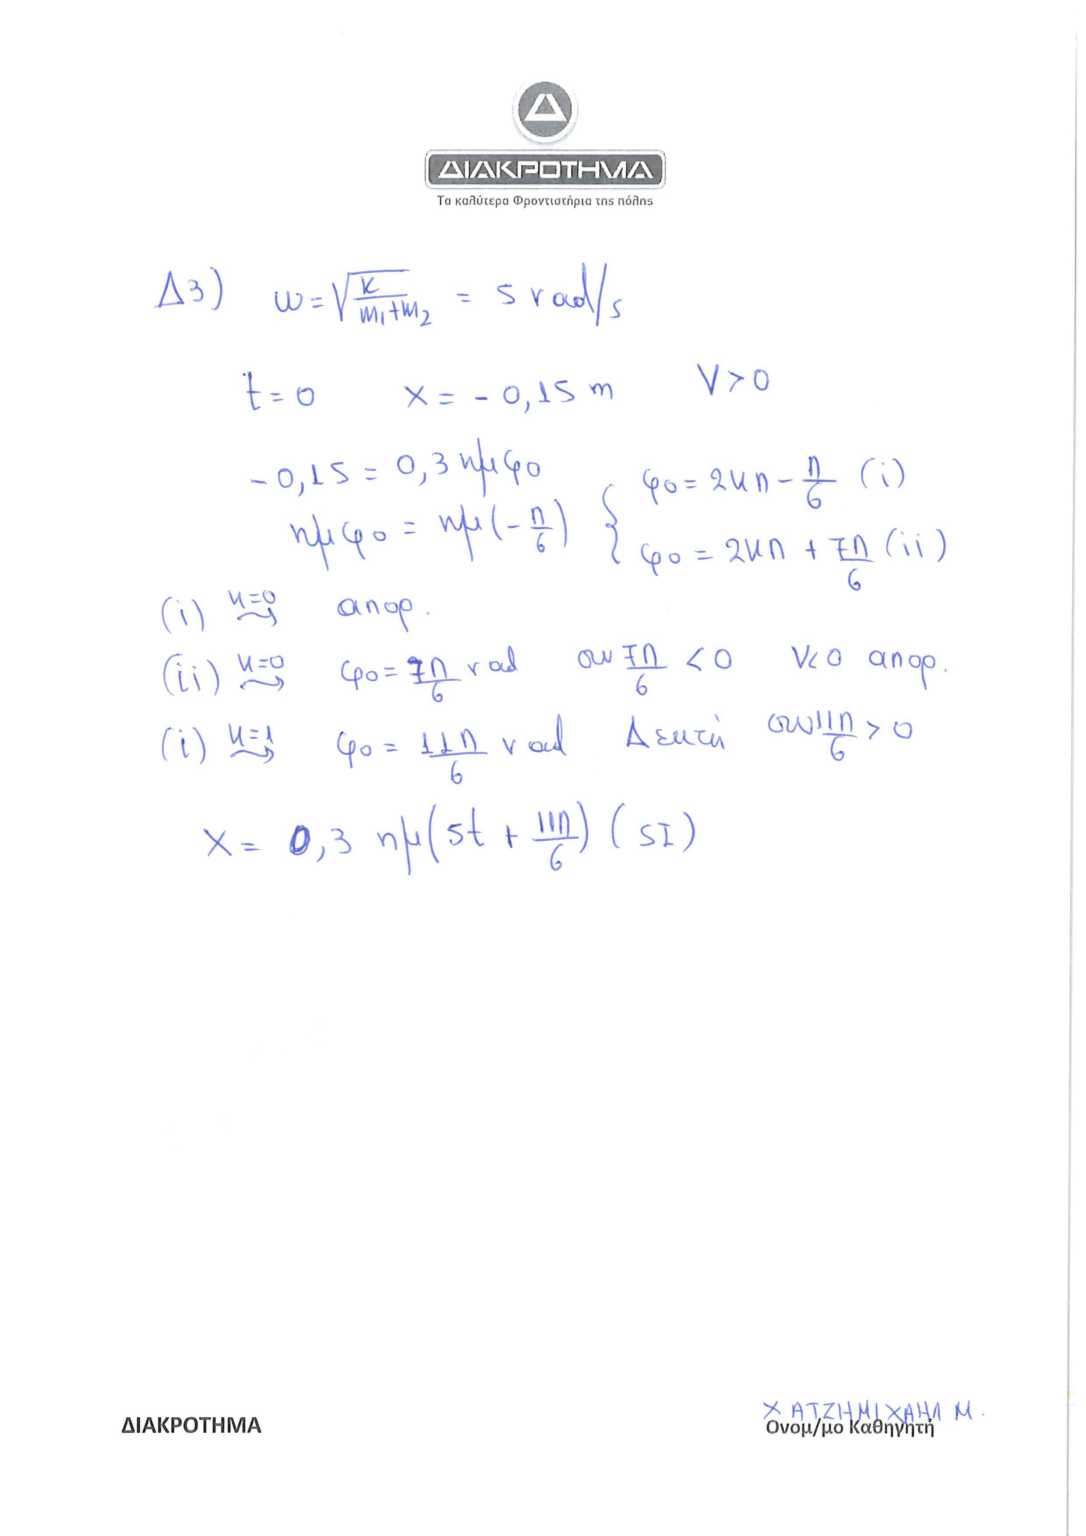 Δ
ΔΙΑΚΡΟΤΗΜΑ
Τα καλύτερα Φροντιστήρια της πόλης
Δ3) ω = √(K/(m₁+m₂)) = 5 rad/s
t=0 x = - 0,15 m V>0
-0,15 = 0,3 ημφ₀
ημφ₀ = ημ(-π/6) { φ₀ = 2κπ - π/6 (i)
φ₀ = 2κπ + 7π/6 (ii)
(i) κ=0 → απορ.
(ii) κ=0 → φ₀ = 7π/6 rad συν 7π/6 < 0 V<0 απορ.
(i) κ=1 → φ₀ = 11π/6 rad Δεκτή συν 11π/6 > 0
x = 0,3 ημ(5t + 11π/6) (SI)
ΧΑΤΖΗΜΙΧΑΗΛ Μ.
ΔΙΑΚΡΟΤΗΜΑ Ονομ/μο Καθηγητή